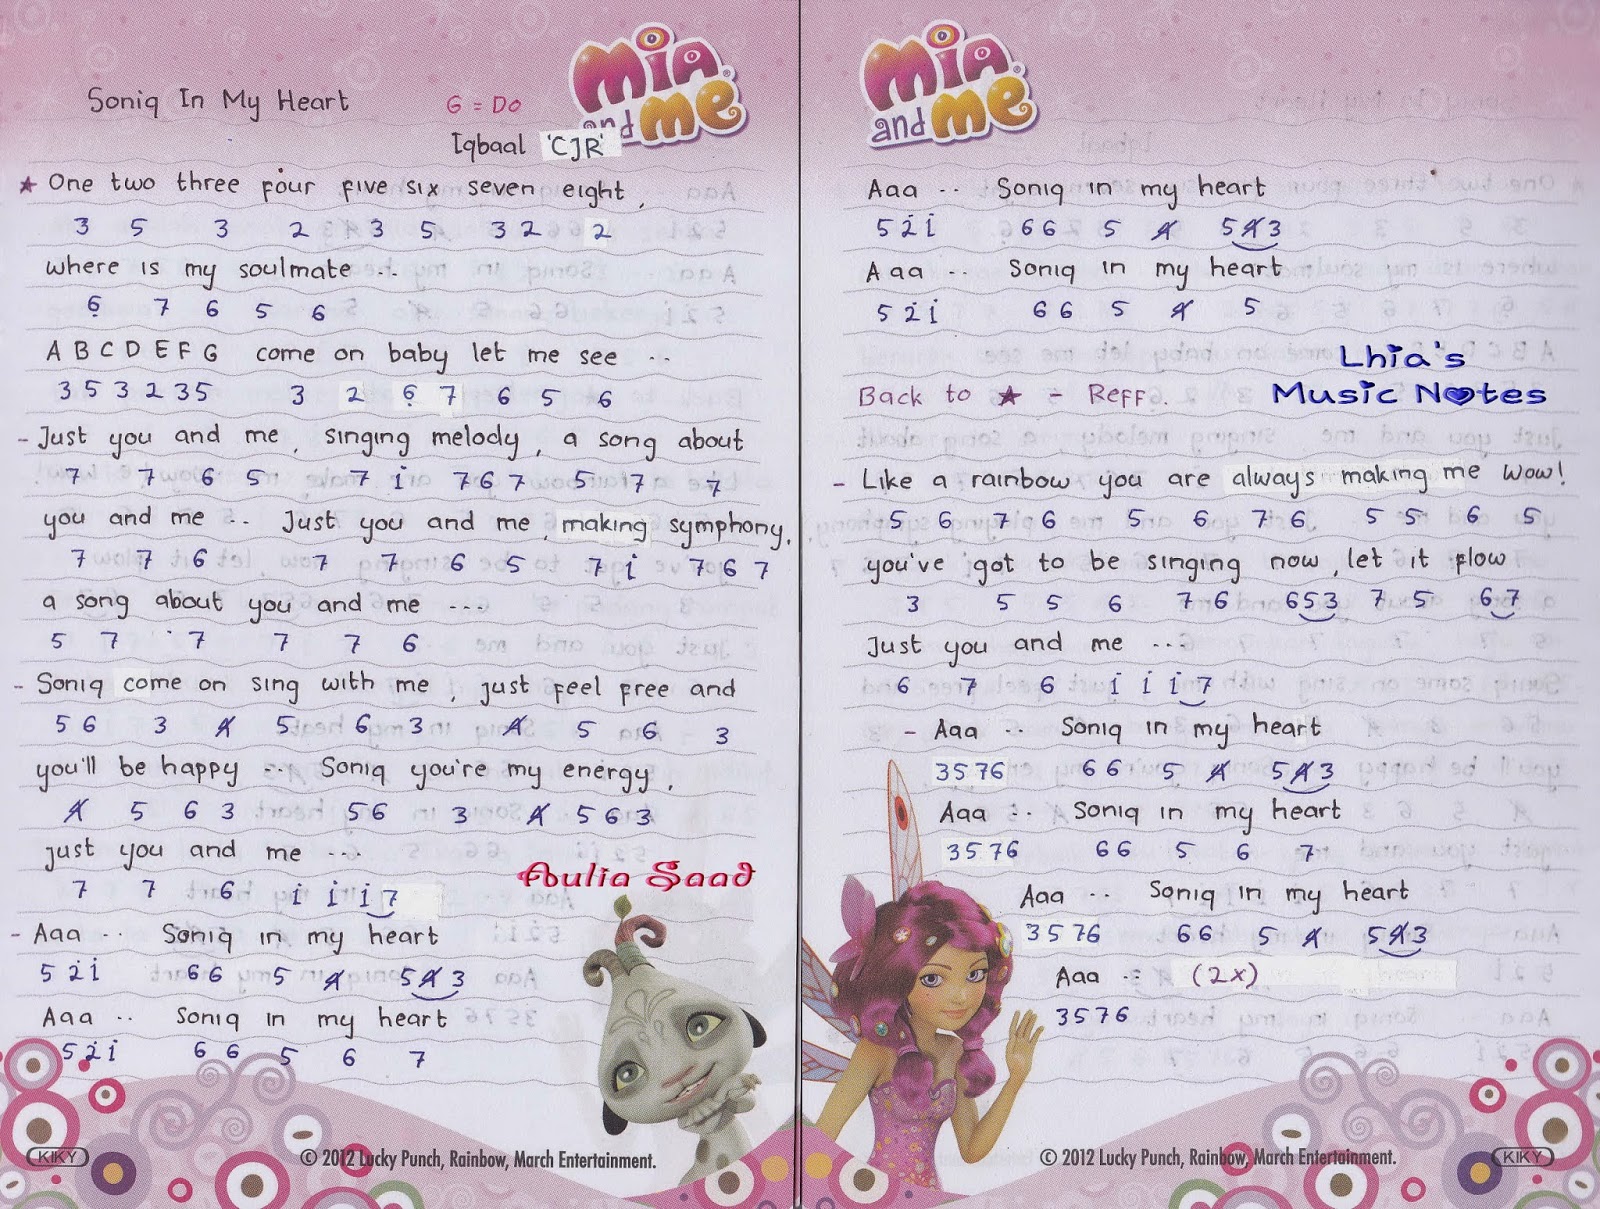 Mia and me
Soniq In My Heart
G = Do
Iqbaal 'CJR'
★ One two three four five six seven eight,
3 5 3 2 3 5 3 2 2
where is my soulmate ...
6̣ 7 6 5 6
A B C D E F G come on baby let me see ..
3 5 3 2 3 5 3 2 6̣ 7 6 5 6
- Just you and me, singing melody, a song about
7 7 6 5 7 i 7 6 7 5 7 7
you and me .. Just you and me, making symphony,
7 7 6 7 7 6 5 7 i 7 6 7
a song about you and me ...
5 7 7 7 7 6
- Soniq come on sing with me, just feel free and
5 6 3 4̸ 5 6 3 4̸ 5 6 3
you'll be happy .. Soniq you're my energy,
4̸ 5 6 3 5 6 3 4̸ 5 6 3
just you and me ...
7 7 6 i i i 7
Aulia Saad
- Aaa .. Soniq in my heart
5 2̇ i 6 6 5 4̸ 5 4̸ 3
Aaa .. Soniq in my heart
5 2̇ i 6 6 5 6 7
KIKY
© 2012 Lucky Punch, Rainbow, March Entertainment.
Mia and me
Aaa .. Soniq in my heart
5 2̇ i 6 6 5 4̸ 5 4̸ 3
Aaa .. Soniq in my heart
5 2̇ i 6 6 5 4̸ 5
Lhia's
Music Notes
Back to ★ - Reff.
- Like a rainbow you are always making me wow!
5 6 7 6 5 6 7 6 5 5 6 5
you've got to be singing now, let it flow
3 5 5 6 7 6 6 5 3 7 5 6 7
Just you and me ...
6 7 6 i i i 7
- Aaa .. Soniq in my heart
3 5 7 6 6 6 5 4̸ 5 4̸ 3
Aaa .. Soniq in my heart
3 5 7 6 6 6 5 6 7
Aaa .. Soniq in my heart
3 5 7 6 6 6 5 4̸ 5 4̸ 3
Aaa .. (2x)
3 5 7 6
© 2012 Lucky Punch, Rainbow, March Entertainment.
KIKY